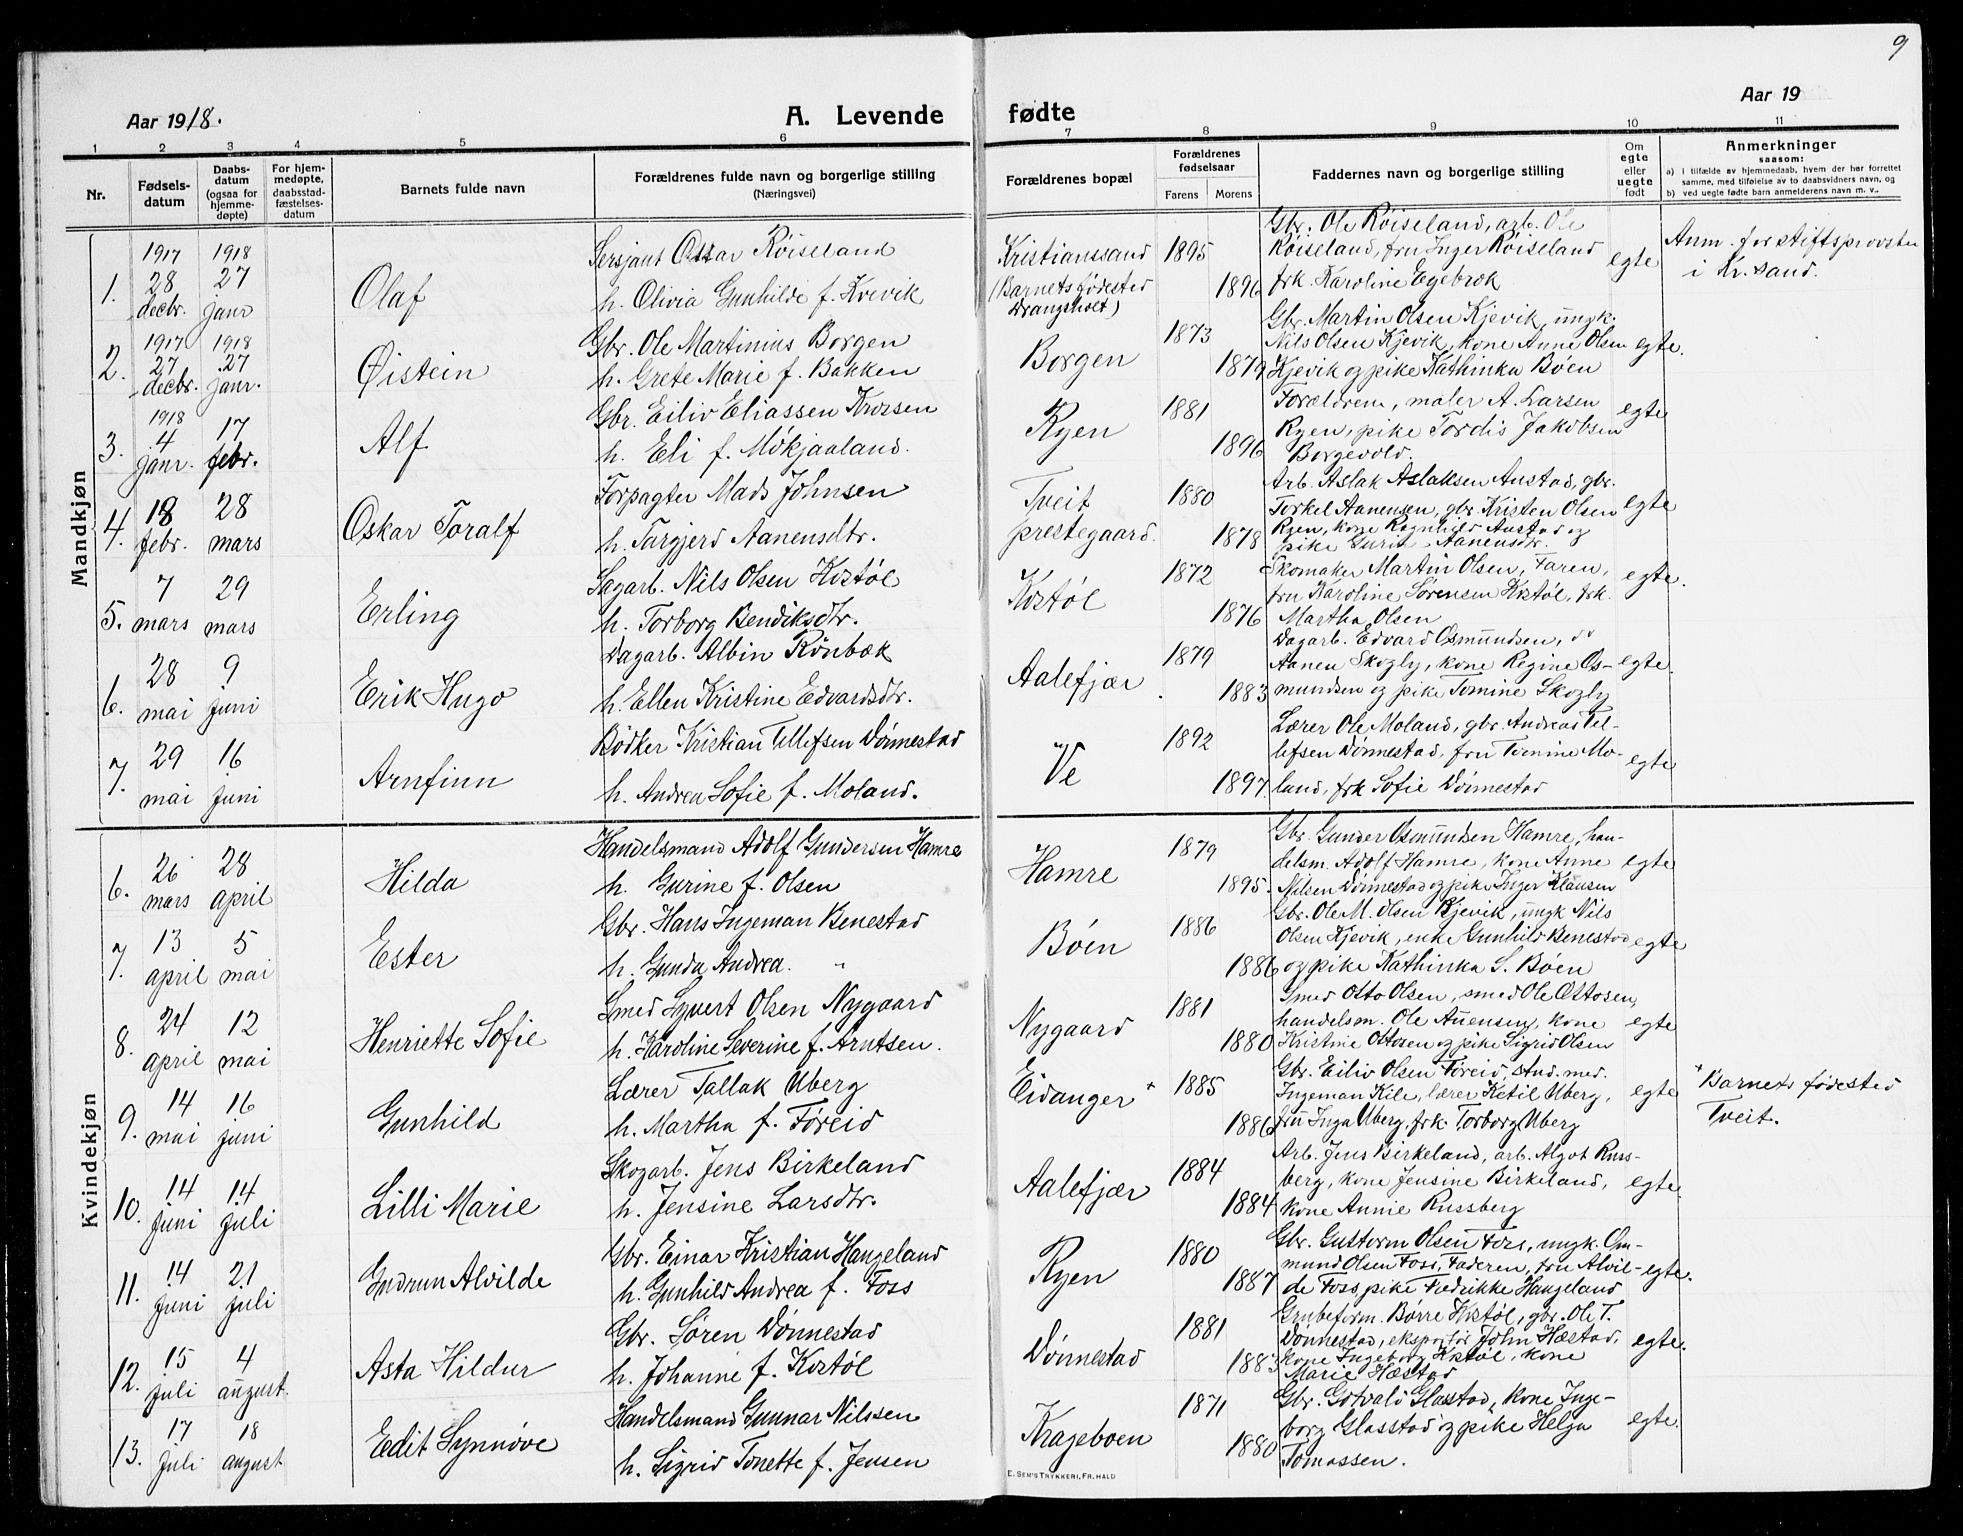 9
Aar 1918.
A. Levende
fødte
Aar 19
1 2 3 4 5 6 7 8 9 10 11
Nr.
Fødsels-
datum
Daabs-
datum
(ogsaa for
hjemme-
døpte)
For hjem-
medøpte,
daabsstad-
fæstelses-
datum
Barnets fulde navn
Forældrenes fulde navn og borgerlige stilling
(Næringsvei)
Forældrenes bopæl
Forældrenes
fødselsaar
Farens Morens
Faddernes navn og borgerlige stilling
Om
egte
eller
uegte
født
Anmerkninger
saasom:
a) i tilfælde av hjemmedaab, hvem der har forrettet
samme, med tilføielse av to daabsvidners navn, og
b) ved uegte fødte barn anmelderens navn m. v..
Mandkjøn
1.
1917
28
decbr.
1918
27
janr
Olaf
Sersjant Oskar Röiseland
h. Olivia Gunhilde f. Kvevik
Kristianssand
(Barnets fødested
Drangsholt)
1895
1896
Gbr. Ole Röiseland, arb. Ole
Röiseland, fru Inger Röiseland
frk. Karoline Egebrok
egte
Anm. for stiftsprovsten
i Kr.sand.
2.
1917
27
decbr.
1918
27
janr.
Øistein
Gbr. Ole Martinius Borgen
h. Grete Marie f. Bakken
Borgen
1873
1879
Gbr. Martin Olsen Kjevik, ungk.
Nils Olsen Kjevik, kone Anne Olsen
Kjevik og pike Kathinka Bøen
egte.
3.
1918
4
janr.
17
febr.
Alf
Gbr. Eiliv Eliassen Krossen
h. Eli f. Mökjaaland.
Ryen
1881
1896
Forældrene, maler A. Larsen
Ryen, pike Tordis Jakobsen
Borgevold.
egte
4.
18
febr.
28
mars
Oskar Toralf
Forpagter Mads Johnsen
h. Targjerd Aanensdtr.
Tveit
prestegaard.
1880
1878
Arb. Aslak Aslaksen Austad, gbr.
Torkel Aanensen, gbr. Kristen Olsen
Ryen, kone Ragnhild Austad og
pike Gurit Aanensdtr.
egte
5.
7
mars
29
mars
Erling
Sagarb. Nils Olsen Kostøl
h. Torborg Bendiksdtr.
Kostøl
1872
1876
Skomaker Martin Olsen, Faren,
fru Karoline Sørensen Kostøl, frk.
Martha Olsen
egte.
6.
28
mai
9
juni
Erik Hugo
Dagarb. Albin Rönbæk
h. Ellen Kristine Edvardsdtr.
Aalefjær
1879
1883
Dagarb. Edvard Osmundsen, do
Aanen Skogly, kone Regine Os-
mundsen og pike Tomine Skogly
egte
7.
29
mai
16
juni
Arnfinn
Bödker Kristian Tellefsen Dönnestad
h. Andrea Sofie f. Moland.
Ve
1892
1897
Lærer Ole Moland, gbr. Andreas Tel-
lefsen Dönnestad, fru Tomine Mo-
land, frk Sofie Dönnestad
egte
Kvindekjøn
6.
26
mars
28
april
Hilda
Handelsmand Adolf Gundersen Hamre
h. Gurine f. Olsen
Hamre
1879
1895.
Gbr. Gunder Osmundsen Hamre, han-
delsm. Adolf Hamre, kone Anne
Nilsen Dönnestad og pike Inger Klausen
egte
7.
13
april
5
mai
Ester
Gbr. Hans Ingeman Benestad
h. Gunda Andrea. "
Bøen
1886
1886
Gbr. Ole M. Olsen Kjevik, ungk Nils
Olsen Kjevik, enke Gunhild Benestad
og pike Kathinka S. Bøen
egte
8.
24
april
12
mai
Henriette Sofie
Smed Syvert Olsen Nygaard
h. Karoline Severine f. Arntsen.
Nygaard
1881
1880
Smed Otto Olsen, smed Ole Ottosen,
handelsm. Ole Auensen, kone
Kristine Ottosen og pike Sigrid Olsen
egte
9.
14
mai
16
juni
Gunhild
Lærer Tallak Uberg
h. Martha f. Føreid
Eidanger +
1885
1886
Gbr. Eiliv Olsen Føreid, stud. med.
Ingeman Kile, lærer Ketil Uberg,
fru Inga Uberg, frk. Torborg Uberg
egte
+ Barnets fødested
Tveit.
10.
14
juni
14
juli
Lilli Marie
Skogarb. Jens Birkeland
h. Jensine Larsdtr.
Aalefjær
1884
1884
Arb. Jens Birkeland, arb. Algot Russ-
berg, kone Jensine Birkeland,
kone Annie Russberg
egte.
11.
14
juni
21
juli
Gudrun Alvilde
Gbr. Einar Kristian Haugeland
h. Gunhild Andrea f. Foss
Ryen
1880
1887
Gbr. Gustorm Olsen Foss, ungk. Om-
mund Olsen Foss, Faderen, fru Alvil-
de Foss pike Fredrikke Haugeland
egte.
12.
15
juli
4
august.
Asta Hildur
Gbr. Sören Dönnestad
h. Johanne f. Kostöl
Dönnestad
1881
1883
Grubeform. Børre Kostöl, gbr. Ole T.
Dönnestad, ekspeditör John Hæstad,
kone Ingeborg Kostöl, kone
Marie Hæstad
egte.
13.
17
juli
18
august
Edit Synnöve
Handelsmand Gunnar Nilssen
h. Sigrid Tonette f. Jensen
Krageboen
1871
1880
Gbr. Gotvald Glastad, kone Inge-
borg Glasstad og pike Helga
Tomassen.
egte.
E. SEM'S TRYKKERI, FR.HALD